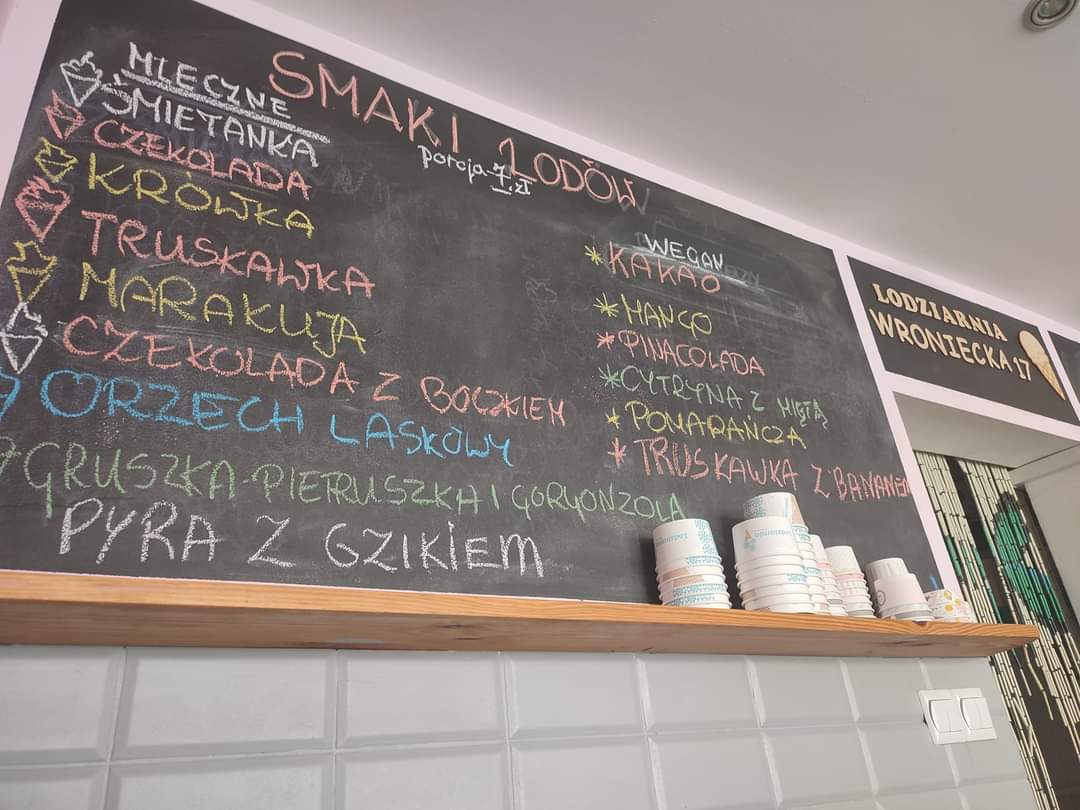 SMAKI LODÓW
porcja 7 zł
MLECZNE
ŚMIETANKA
CZEKOLADA
KRÓWKA
TRUSKAWKA
MARAKUJA
CZEKOLADA Z BOCZKIEM
ORZECH LASKOWY
GRUSZKA-PIETRUSZKA I GORGONZOLA
PYRA Z GZIKIEM
WEGAN
* KAKAO
* MANGO
* PINACOLADA
* CYTRYNA Z MIĘTĄ
* POMARAŃCZA
* TRUSKAWKA Z BANANEM
LODZIARNIA
WRONIECKA 17